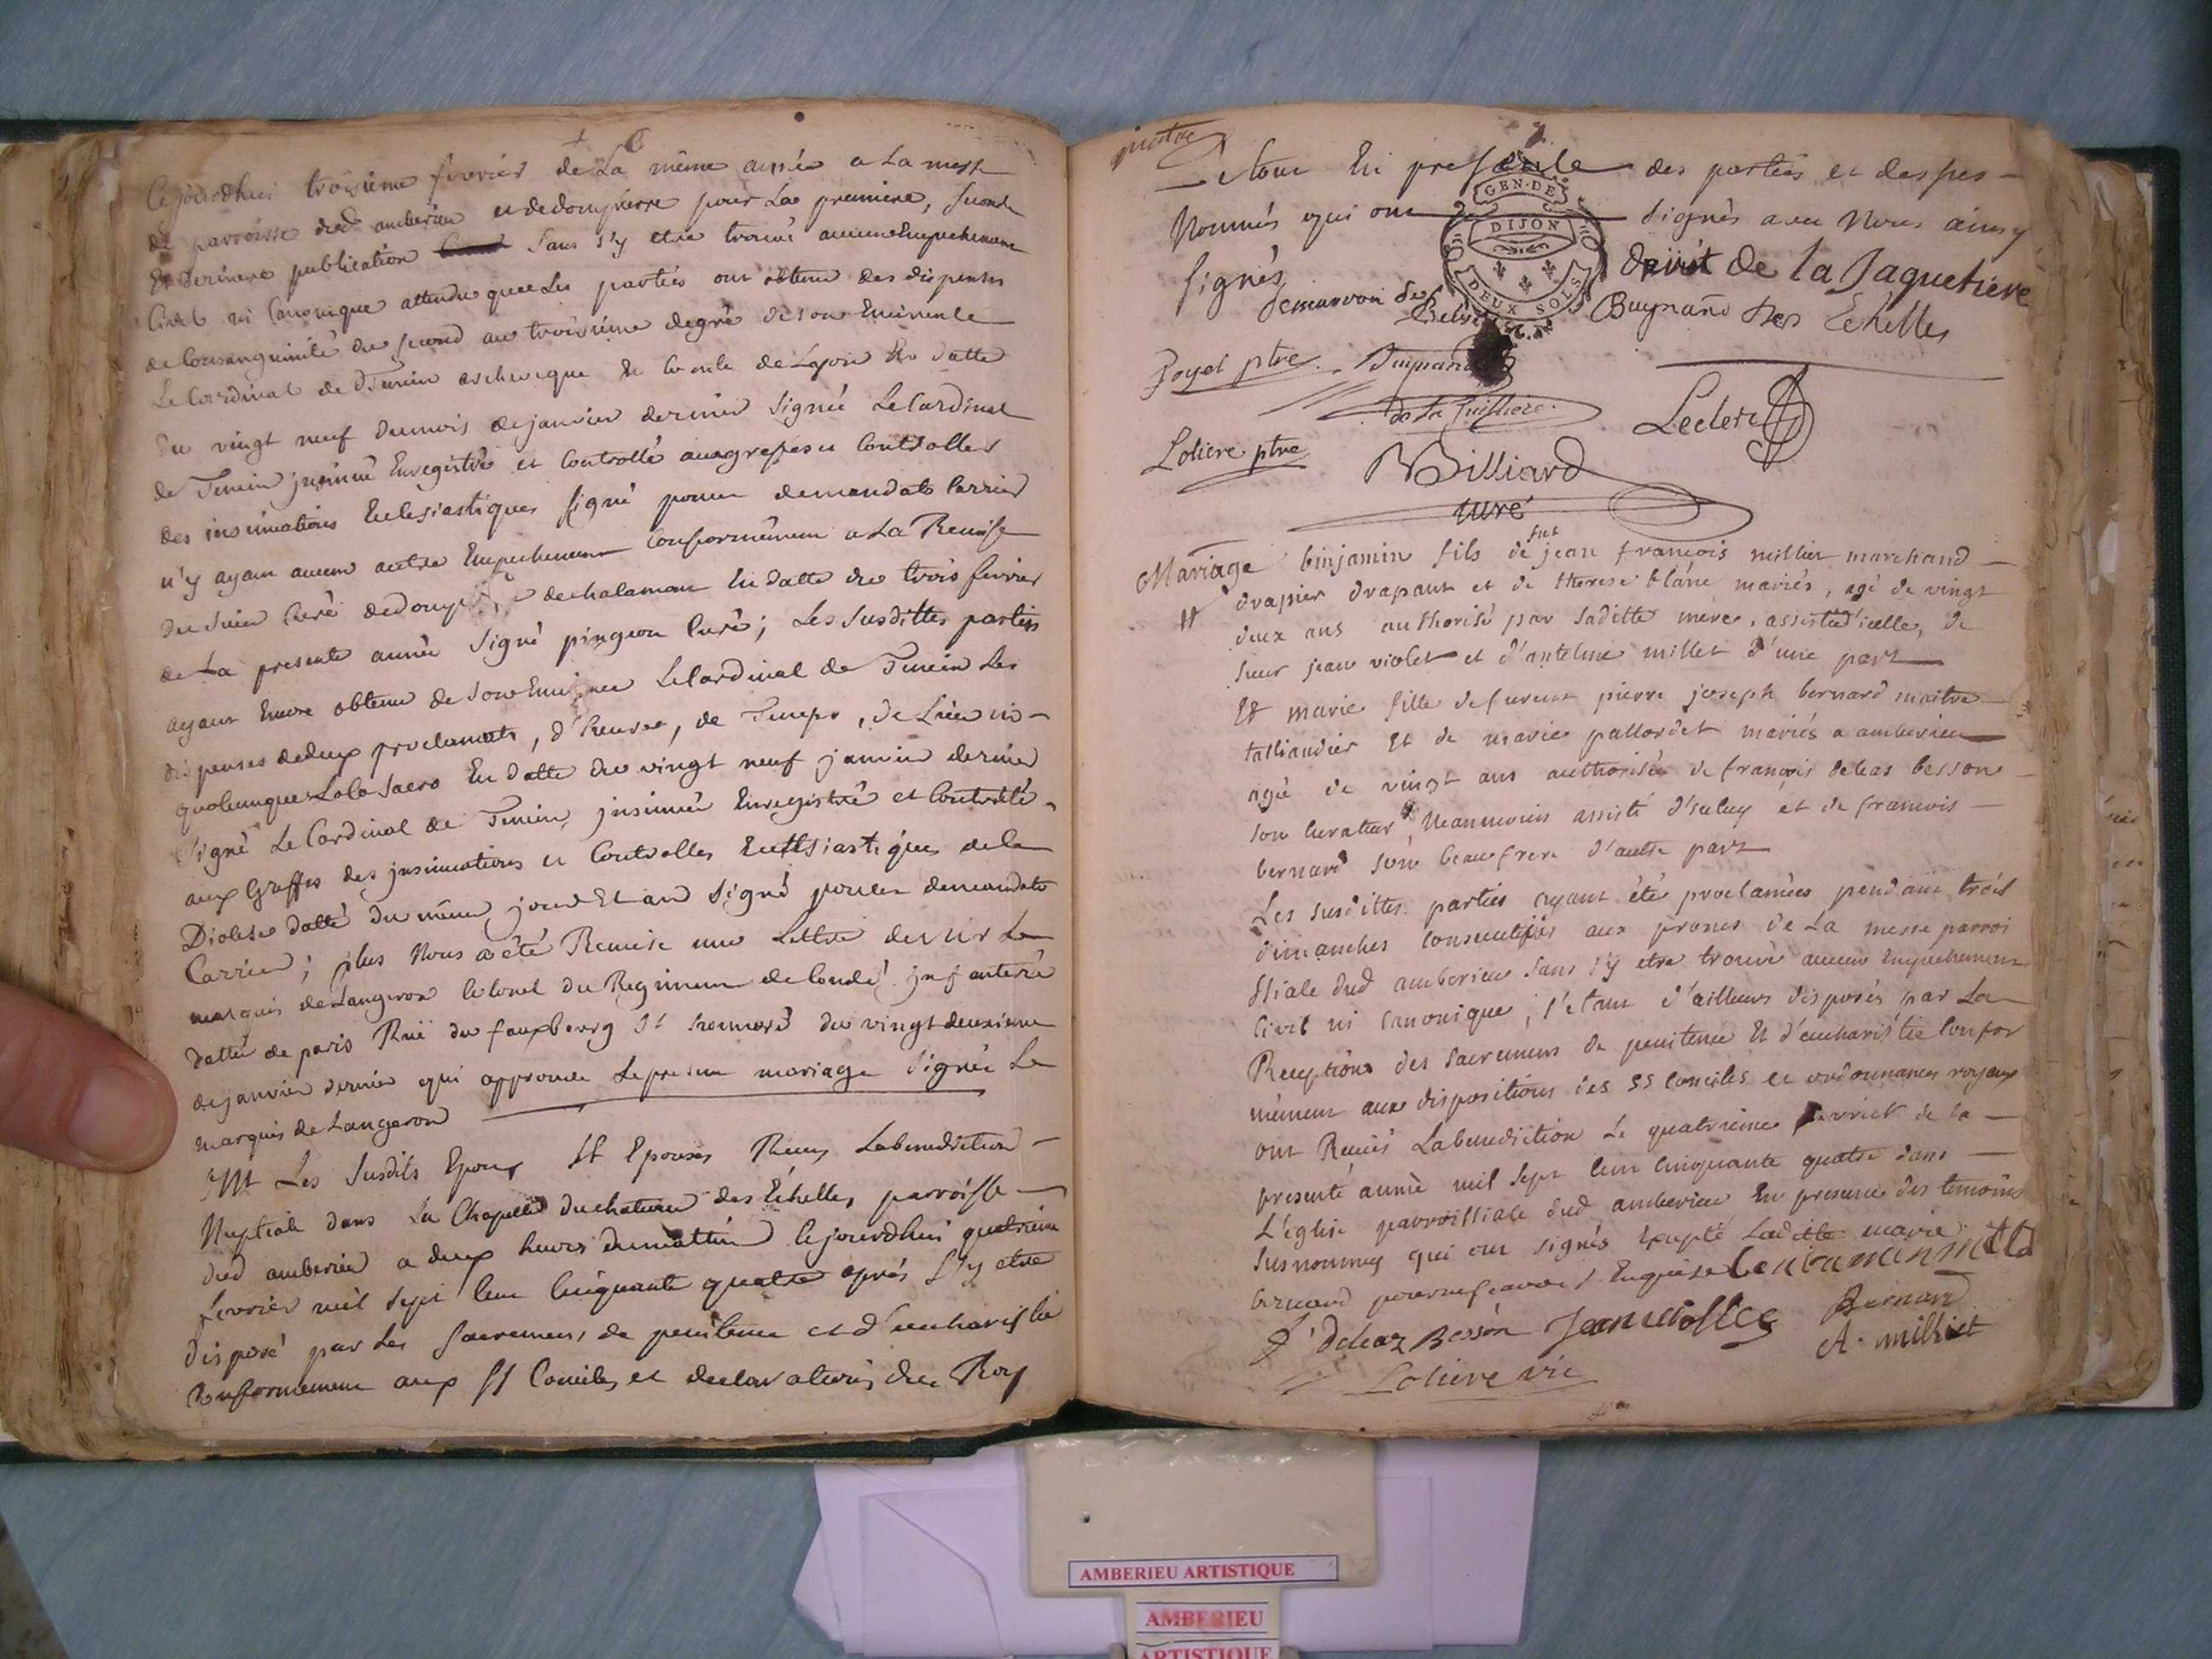 Cejourdhui troisième fevrier de La même année a La messe
de parroisse dud amberieu et dedompierre pour La premiere, seconde
Et Derniere publication sans s'y etre trouvé aucun Empechement
Civil ni Canonique attendu que Les parties ont obtenu des dispenses
de Consanguinité du second au troisième degré de son Eminence
Le Cardinal de Tencin archeveque Et Comte de Lyon En datte
Du vingt neuf dumois dejanvier dernier signée LeCardinal
de Tencin insinué Enregistré et Controllé auxgreffes et Controlles
des insinuations Ecclesiastiques signé demandato Carrier
n'y ayant aucun autre Empechement Conformément a La Remise
du sieur Curé de dechalamon En datte du trois fevrier
de La presente année signé pingeon Curé; Les susdittes parties
ayant Encore obtenu de son Eminence LeCardinal de Tencin Les
dispenses dedeux proclamats, d'heures, de Temps, de Lieu in-
quocumque Loco sacro En datte du vingt neuf janvier dernier
signé Le Cardinal de Tencin, insinué Enregistré et Controllé
aux Greffes des insinuations et Controlles Ecclesiastiques dele
Diocese datté du même jour Et an signé demandato
Carrier; plus Nous a été Remise une Lettre de Mr Le
marquis deLangeron Colonel du Regiment de Condé infanterie
dattée de paris Ruë du fauxbourg St honnoré du vingt deuxieme
dejanvier dernier qui approuve Lepresent mariage signée Le
marquis de Langeron
Les susdits Epoux Et Epouses Reçu Labenediction
Nuptiale dans La Chapelle duchateau des Echelles, parroisse
dud amberieu a deux heures dumattin Cejourdhui quatrieme
fevrier mil sept Cent Cinquante quatre aprés s'y etre
disposé par Les sacremens de penitence et d'eucharistie
Conformement aux SS Conciles et declarations du Roy
Le tout En presence des parties et des sus-
Nommés qui ont signés avec Nous ainsy
signés
GEN. DE
DIJON
DEUX SOLS
de la Jaquetiere
Buynand des Echelles
Poyet ptre
Buynand
Leclerc
Loliere ptre
Billiard
curé
Mariage binjamin fils de feu jean francois millier marchand
drapier drapant et de therese blanc mariés, agé de vingt
deux ans authorisé par saditte mere, assisté d'icelle, de
sieur jean violet et d'antelme millet d'une part
Et marie fille de pierre joseph bernard maitre
talliandier Et de marie pallordet mariés a amberieu
agée de vingt ans authorisée de francois deleas besson
son Curateur, Neanmoins assisté d'iceluy et de francois
bernard son beaufrere d'autre part
Les susdittes parties ayant été proclamées pendant trois
dimanches Consecutifs aux prones de La messe parrois
ssiale dud amberieu sans s'y etre trouvé aucun Empechement
Civil ni Canonique, s'etant d'ailleurs disposés par La
Receptions des sacremens de penitence Et d'eucharistie Confor
mément aux dispositions des SS Conciles et ordonnances royaux
ont Reçuës Labenediction Le quatrieme fevrier de la
presente année mil sept Cent Cinquante quatre dans
L'eglise parroissiale dud amberieu En presence des temoins
susnommés qui ont signés Excepté Laditte marie
bernard pour ne sçavoir Enquise
f' deleaz Besson Jean violles Bernard
A. milliet
Loliere vic
AMBERIEU ARTISTIQUE
AMBERIEU
ARTISTIQUE